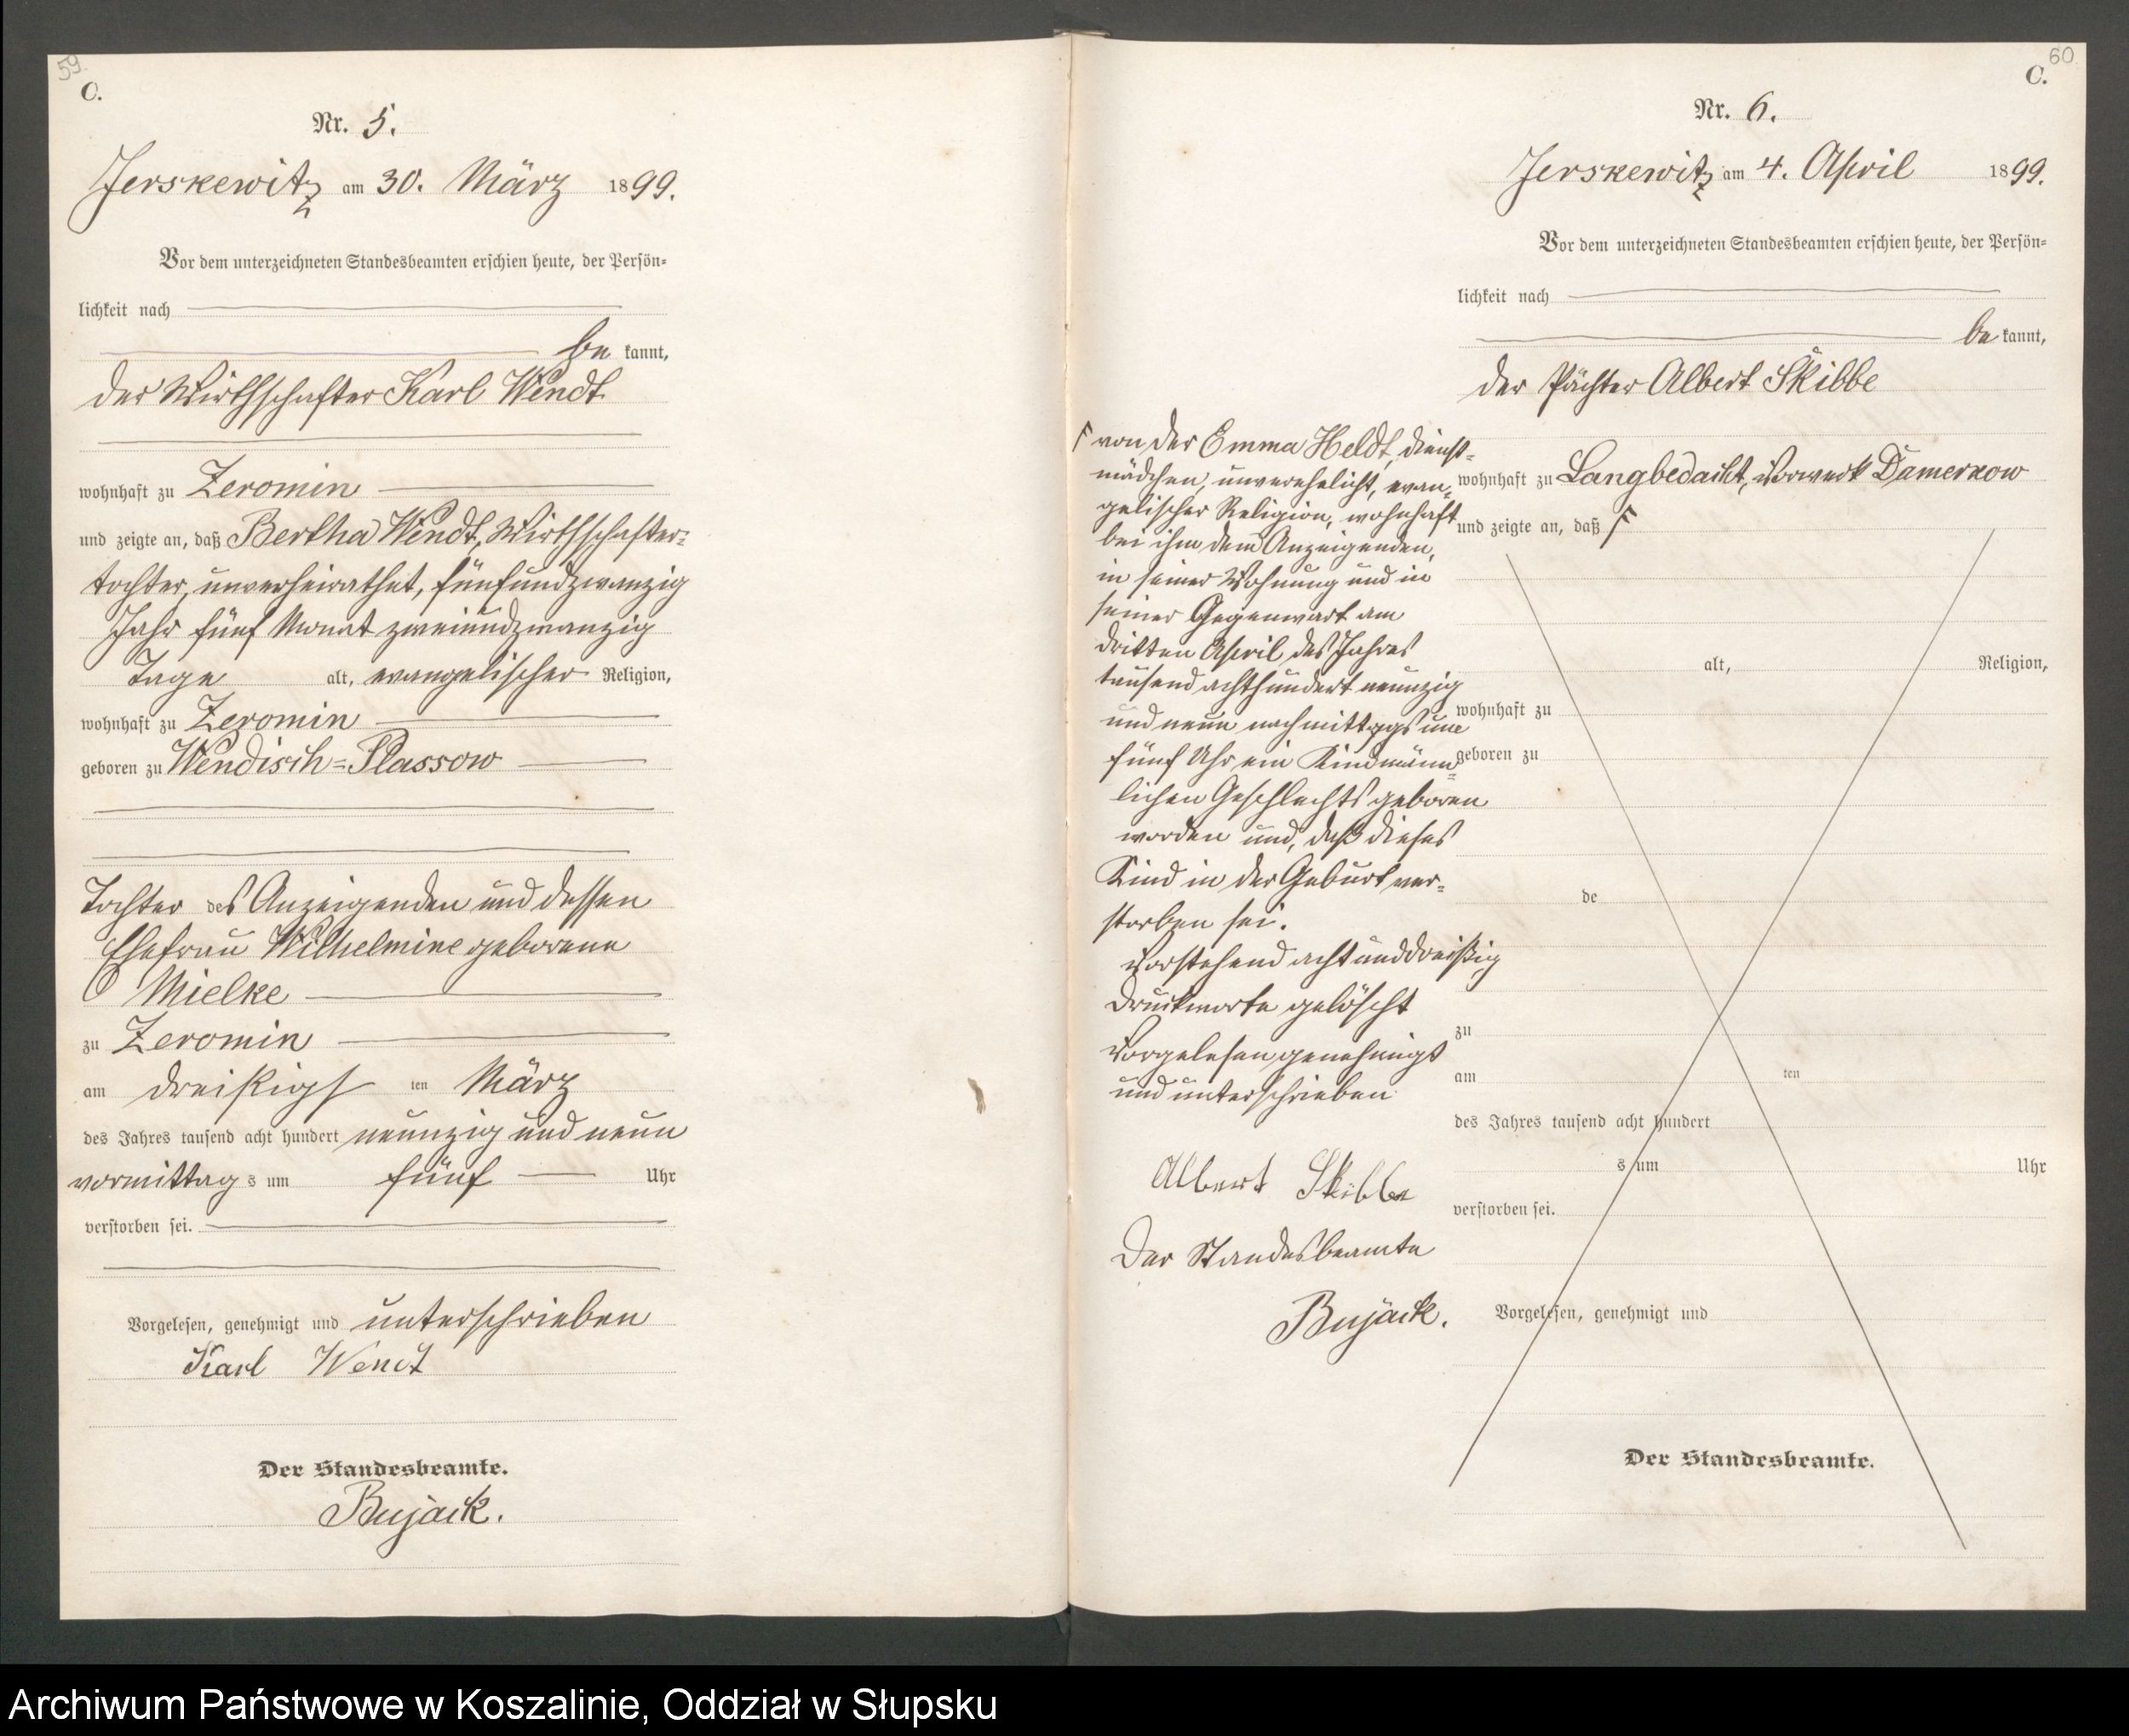 59
C.
Nr. 5.
Jerskewitz am 30. März 1899.
Vor dem unterzeichneten Standesbeamten erschien heute, der Persön-
lichkeit nach
be kannt,
der Wirthschafter Karl Wendt
wohnhaft zu Zeromin
und zeigte an, daß Bertha Wendt, Wirthschafter-
tochter, unverheirathet, fünfundzwanzig
Jahr fünf Monat zweiundzwanzig
Tage alt, evangelischer Religion,
wohnhaft zu Zeromin
geboren zu Wendisch-Plassow
Tochter des Anzeigenden und dessen
Ehefrau Wilhelmine geborene
Mielke
zu Zeromin
am dreißigsten März
des Jahres tausend acht hundert neunzig und neun
vormittags um fünf Uhr
verstorben sei.
Vorgelesen, genehmigt und unterschrieben
Karl Wendt
Der Standesbeamte.
Bujack.
60
C.
Nr. 6.
Jerskewitz am 4. April 1899.
Vor dem unterzeichneten Standesbeamten erschien heute, der Persön-
lichkeit nach
be kannt,
der Pächter Albert Skibbe
wohnhaft zu Langbedacht, Vorwerk Damerkow
und zeigte an, daß Γ
Γ von der Emma Heldt, Dienst-
mädchen, unverehelicht, evan-
gelischer Religion, wohnhaft
bei ihm dem Anzeigenden,
in seiner Wohnung und in
seiner Gegenwart am
dritten April des Jahres
tausend achthundert neunzig
und neun nachmittags um
fünf Uhr ein Kind männ-
lichen Geschlechts geboren
worden und, daß dieses
Kind in der Geburt ver-
storben sei.
Vorstehend achtunddreißig
Druckworte gelöscht
Vorgelesen, genehmigt
und unterschrieben
Albert Skibbe
Der Standesbeamte
Bujack.
alt, Religion,
wohnhaft zu
geboren zu
de
zu
am ten
des Jahres tausend acht hundert
s um Uhr
verstorben sei.
Vorgelesen, genehmigt und
Der Standesbeamte.
Archiwum Państwowe w Koszalinie, Oddział w Słupsku